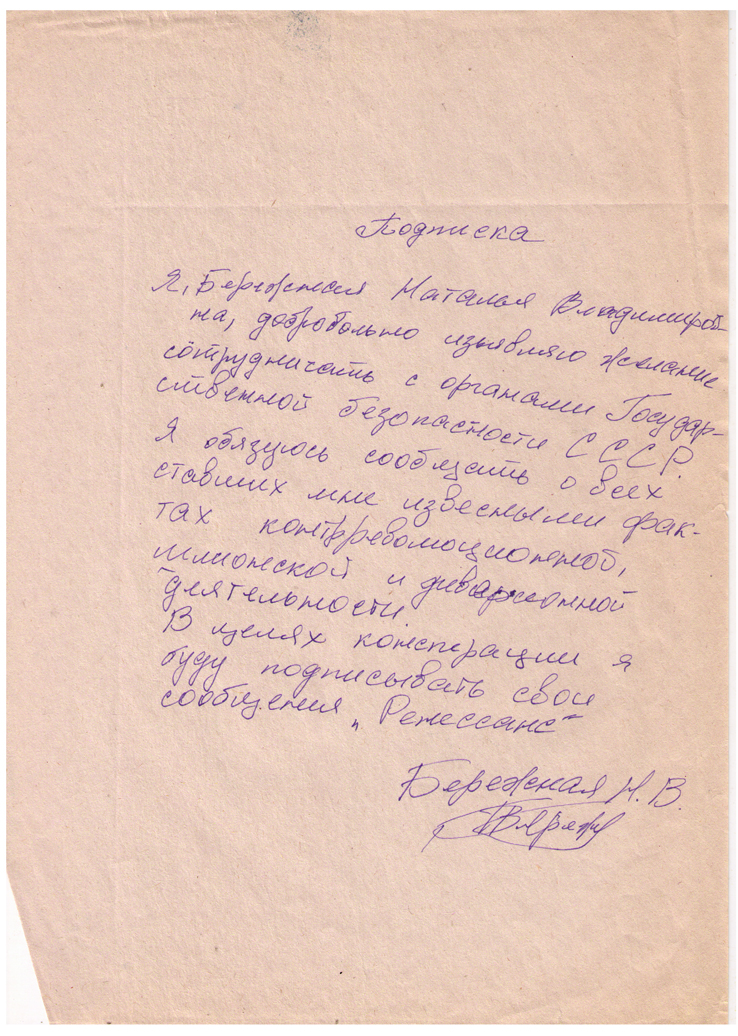 Подписка
Я, Бережная Наталья Владимиров-
на, добровольно изъявляю желание
сотрудничать с органами Государ-
ственной безопасности СССР.
Я обязуюсь сообщать о всех
ставших мне извесными фак-
тах контрреволюционной,
шпионской и диверсионной
деятельности.
В целях конспирации я
буду подписывать свои
сообщения „Ренессанс“
Бережная Н. В.